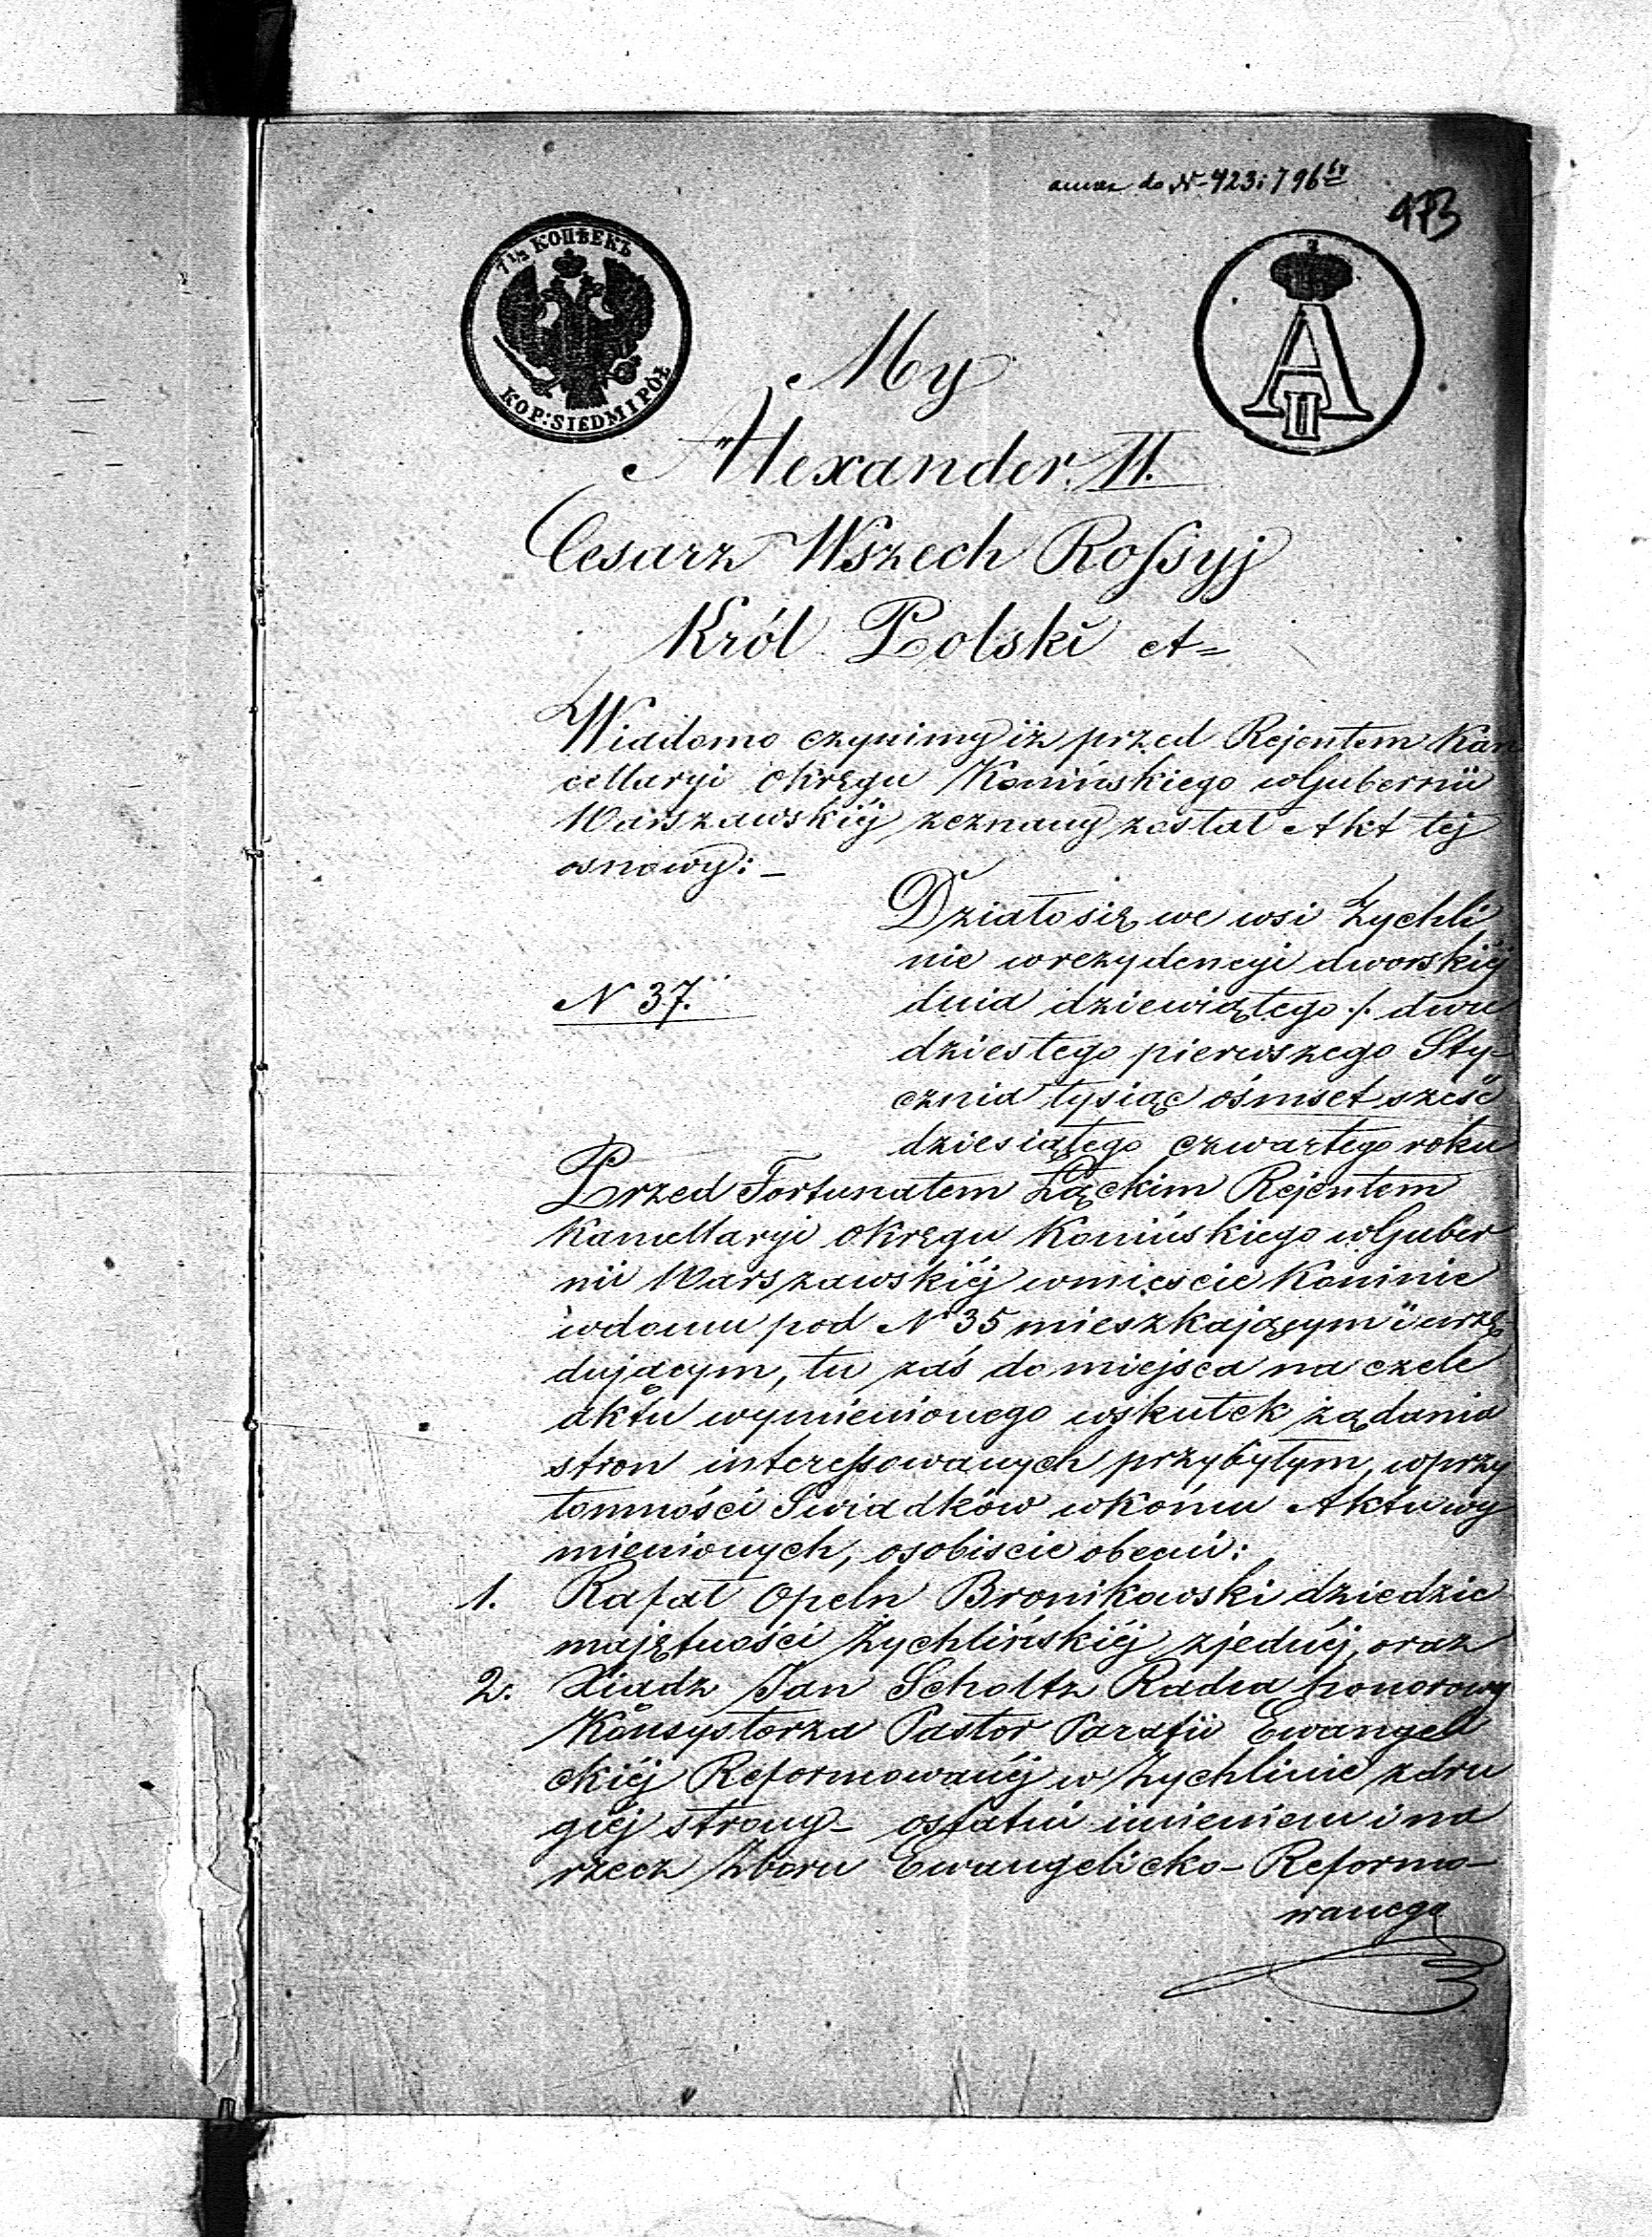 do N 423 i 796
473
7½ КОПѢЕКЪ
KOP: SIEDM I PÓŁ
A II
My
Alexander II.
Cesarz Wszech Rossyj
Król Polski et=
Wiadomo czynimy iż przed Rejentem Kan
cellaryi Okręgu Konińskiego w Gubernii
Warszawskiéj zeznany został Akt téj
osnowy: _
Działo się we wsi Żychli
nie w rezydencyi dworskiéj
N 37.
dnia dziewiątego /. dwu
dziestego pierwszego Sty-
cznia tysiąc ośmset sześć
dziesiątego czwartego roku
Przed Fortunatem Łąckim Rejentem
Kancellaryi Okręgu Konińskiego w Guber
nii Warszawskiéj w mieście Koninie
w domu pod N 35 mieszkającym i urzę
dującym, tu zaś do miejsca na czele
aktu wymienionego wskutek żądania
stron interessowanych przybyłym, w przy
tomności Swiadków w końcu Aktu wy
mienionych, osobiscie obecni:
1. Rafał Opeln Bronikowski dziedzic
majętności Żychlińskiéj z jednéj, oraz
2. Xiadz Jan Scholtz Radca honorowy
Konsystorza Pastor Parafii Ewangeli
ckiéj Reformowanéj w Żychlinie z dru
giéj strony – ostatni imieniem i na
rzecz Zboru Ewangelicko-Reformo-
wanego